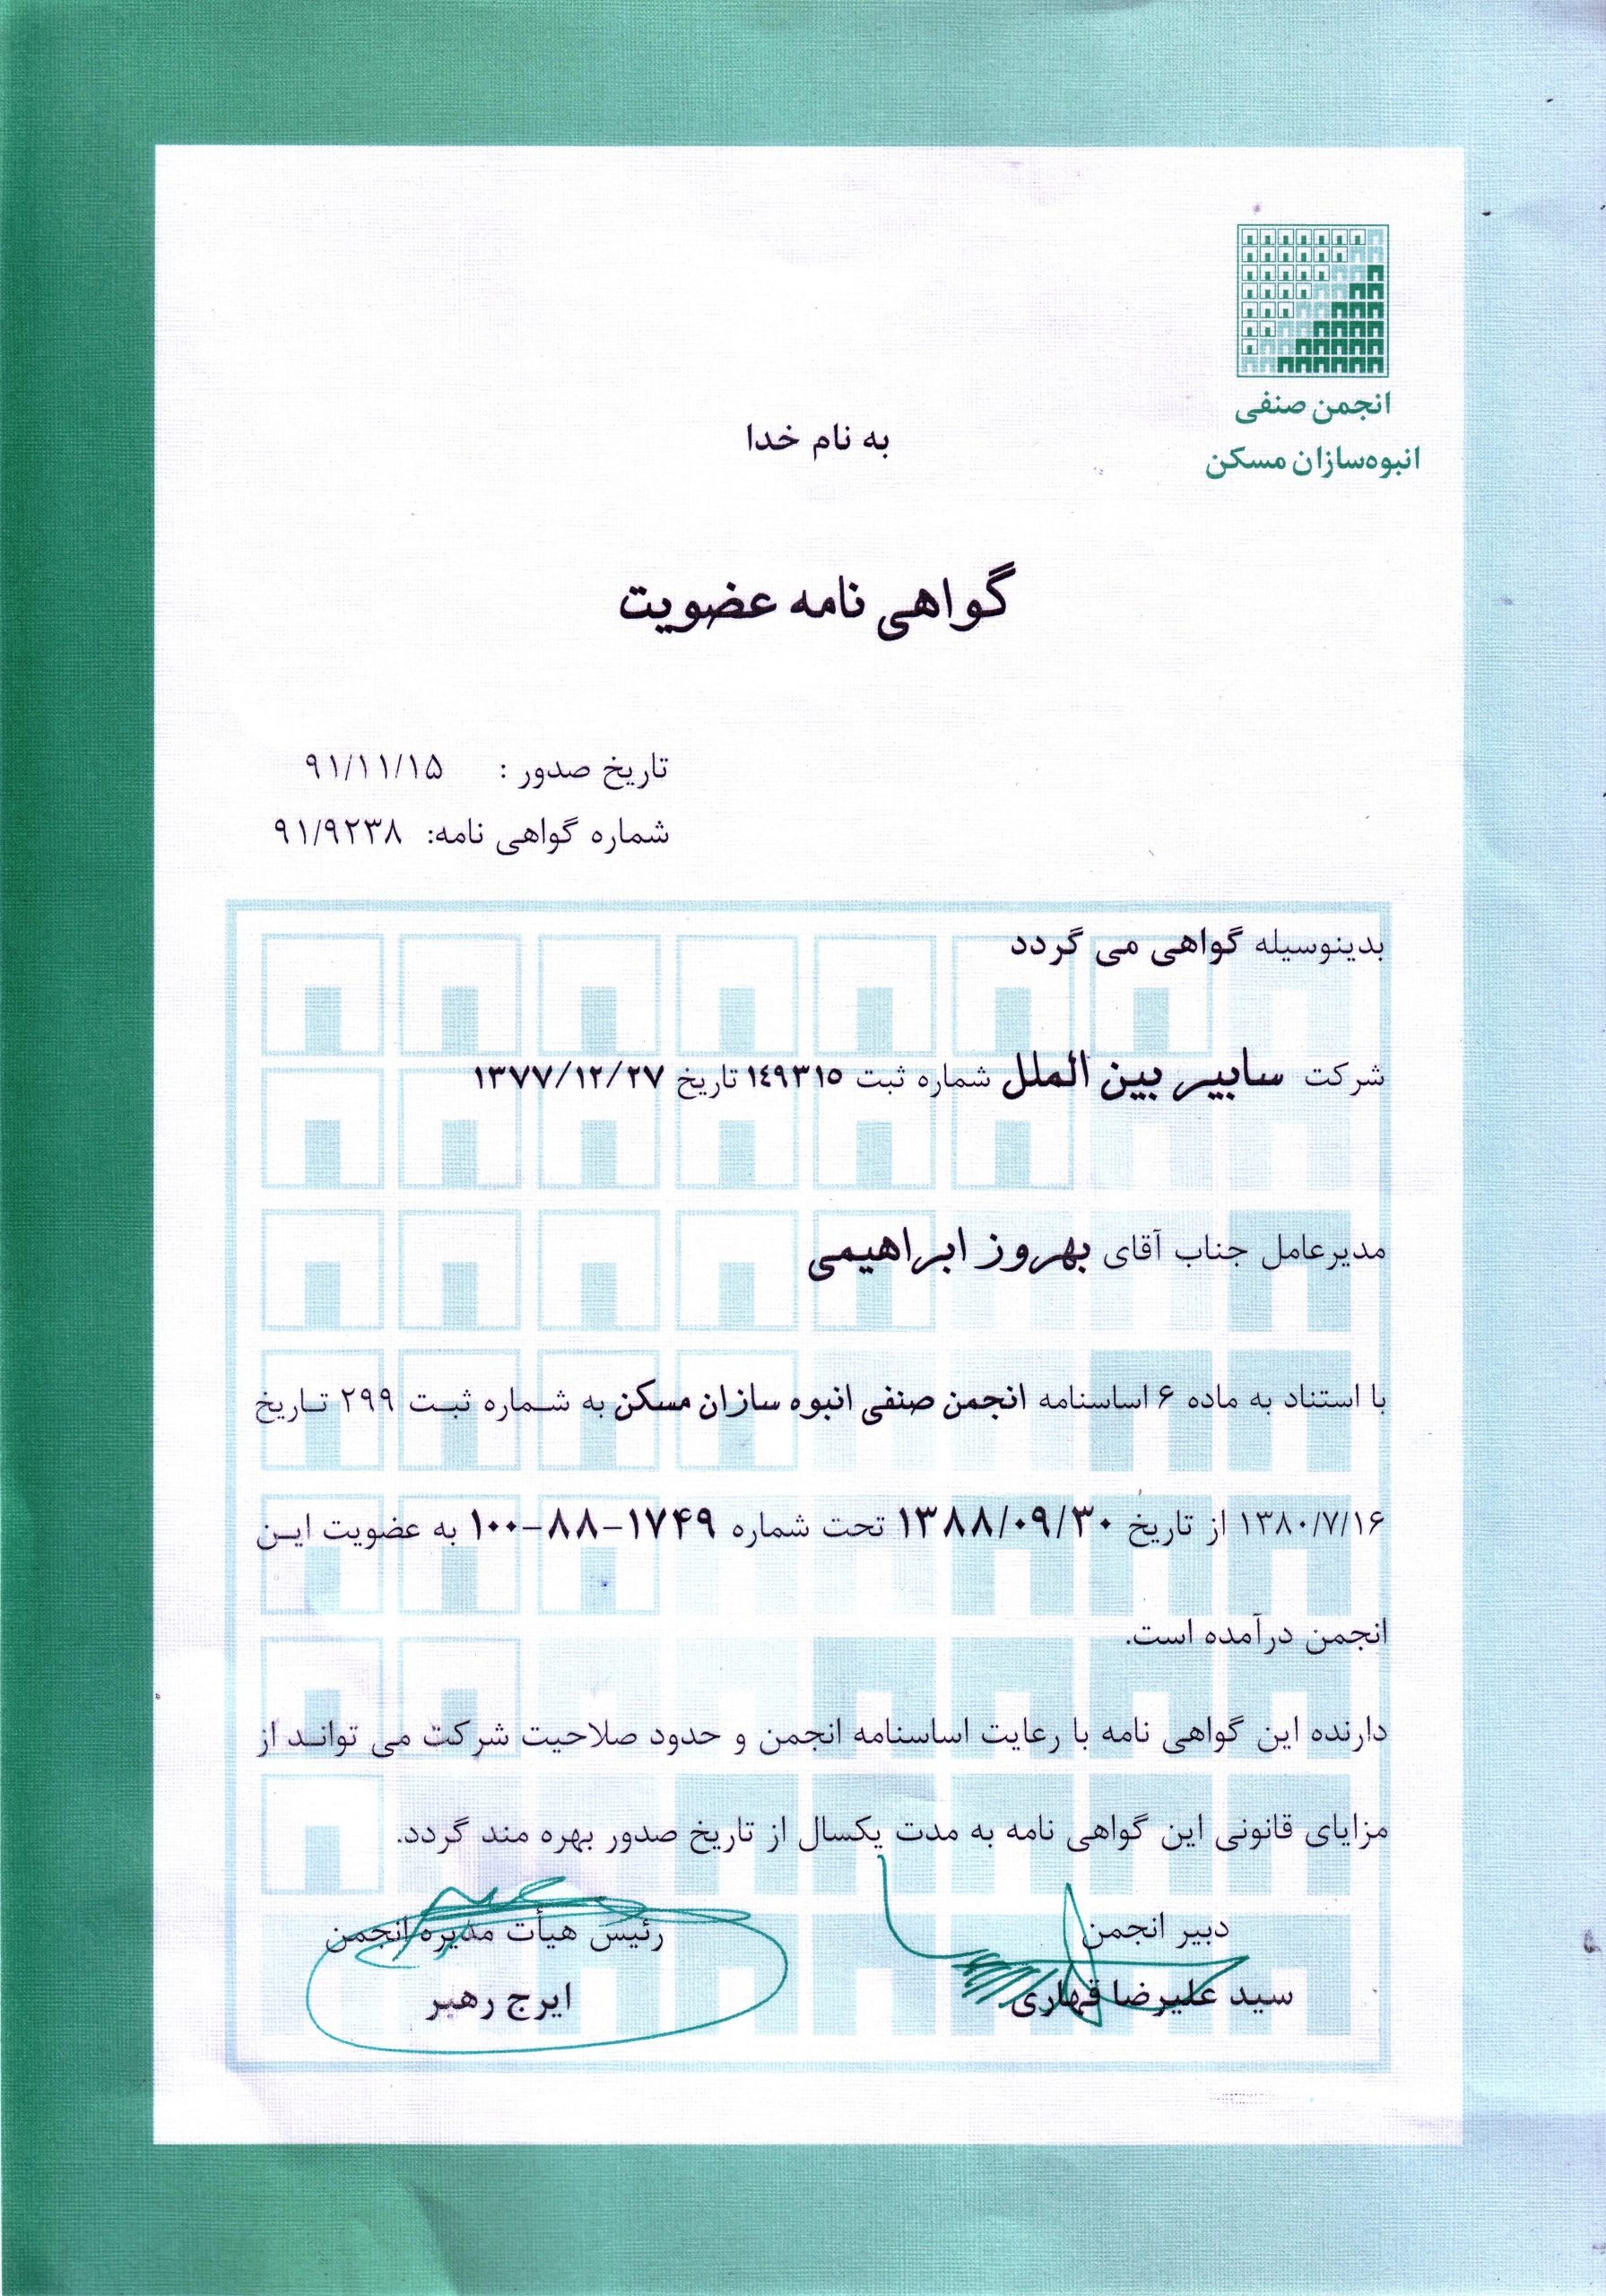 انجمن صنفی
انبوه‌سازان مسکن
به نام خدا
گواهی نامه عضویت
تاریخ صدور : ۹۱/۱۱/۱۵
شماره گواهی نامه: ۹۱/۹۲۳۸
بدینوسیله گواهی می گردد
شرکت سابیر بین الملل شماره ثبت ۱٤۹۳۱۵ تاریخ ۱۳۷۷/۱۲/۲۷
مدیرعامل جناب آقای بهروز ابراهیمی
با استناد به ماده ۶ اساسنامه انجمن صنفی انبوه سازان مسکن به شماره ثبت ۲۹۹ تاریخ
۱۳۸۰/۷/۱۶ از تاریخ ۱۳۸۸/۰۹/۳۰ تحت شماره ۱۷۴۹-۸۸-۱۰۰ به عضویت این
انجمن درآمده است.
دارنده این گواهی نامه با رعایت اساسنامه انجمن و حدود صلاحیت شرکت می تواند از
مزایای قانونی این گواهی نامه به مدت یکسال از تاریخ صدور بهره مند گردد.
دبیر انجمن رئیس هیأت مدیره انجمن
سید علیرضا قهاری ایرج رهبر